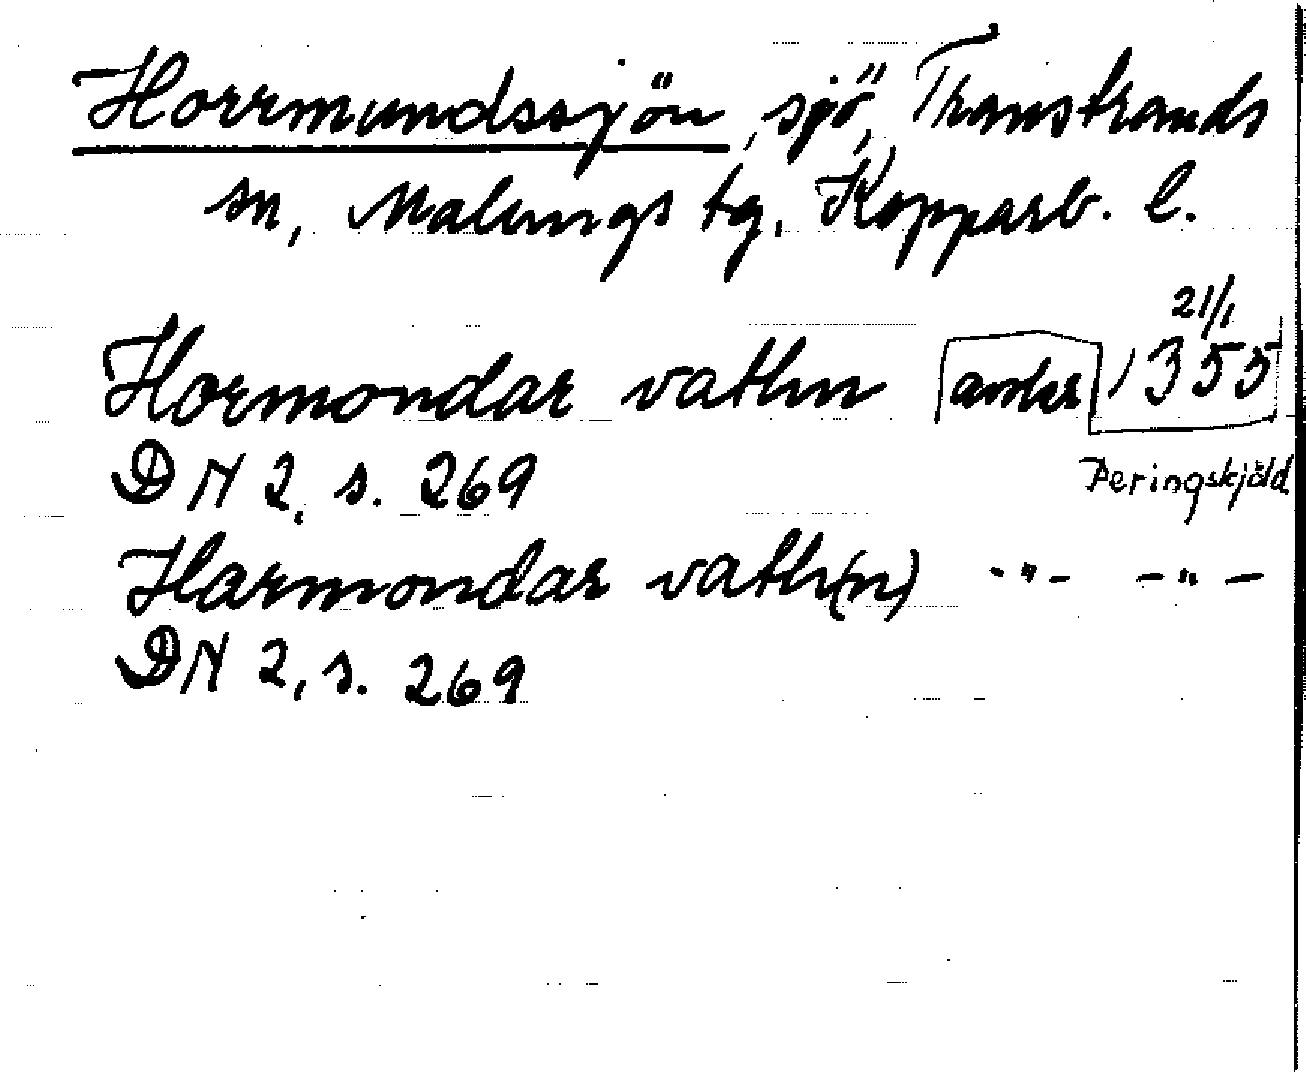 Horrmundssjön, sjö, Transtrands
sn, Malungs tg, Kopparb. l.
21/1
Hormondar vathn avskr 1355
DN 2, s. 269
Peringskjöld
Harmondar vath(n) -"- -"-
DN 2, s. 269